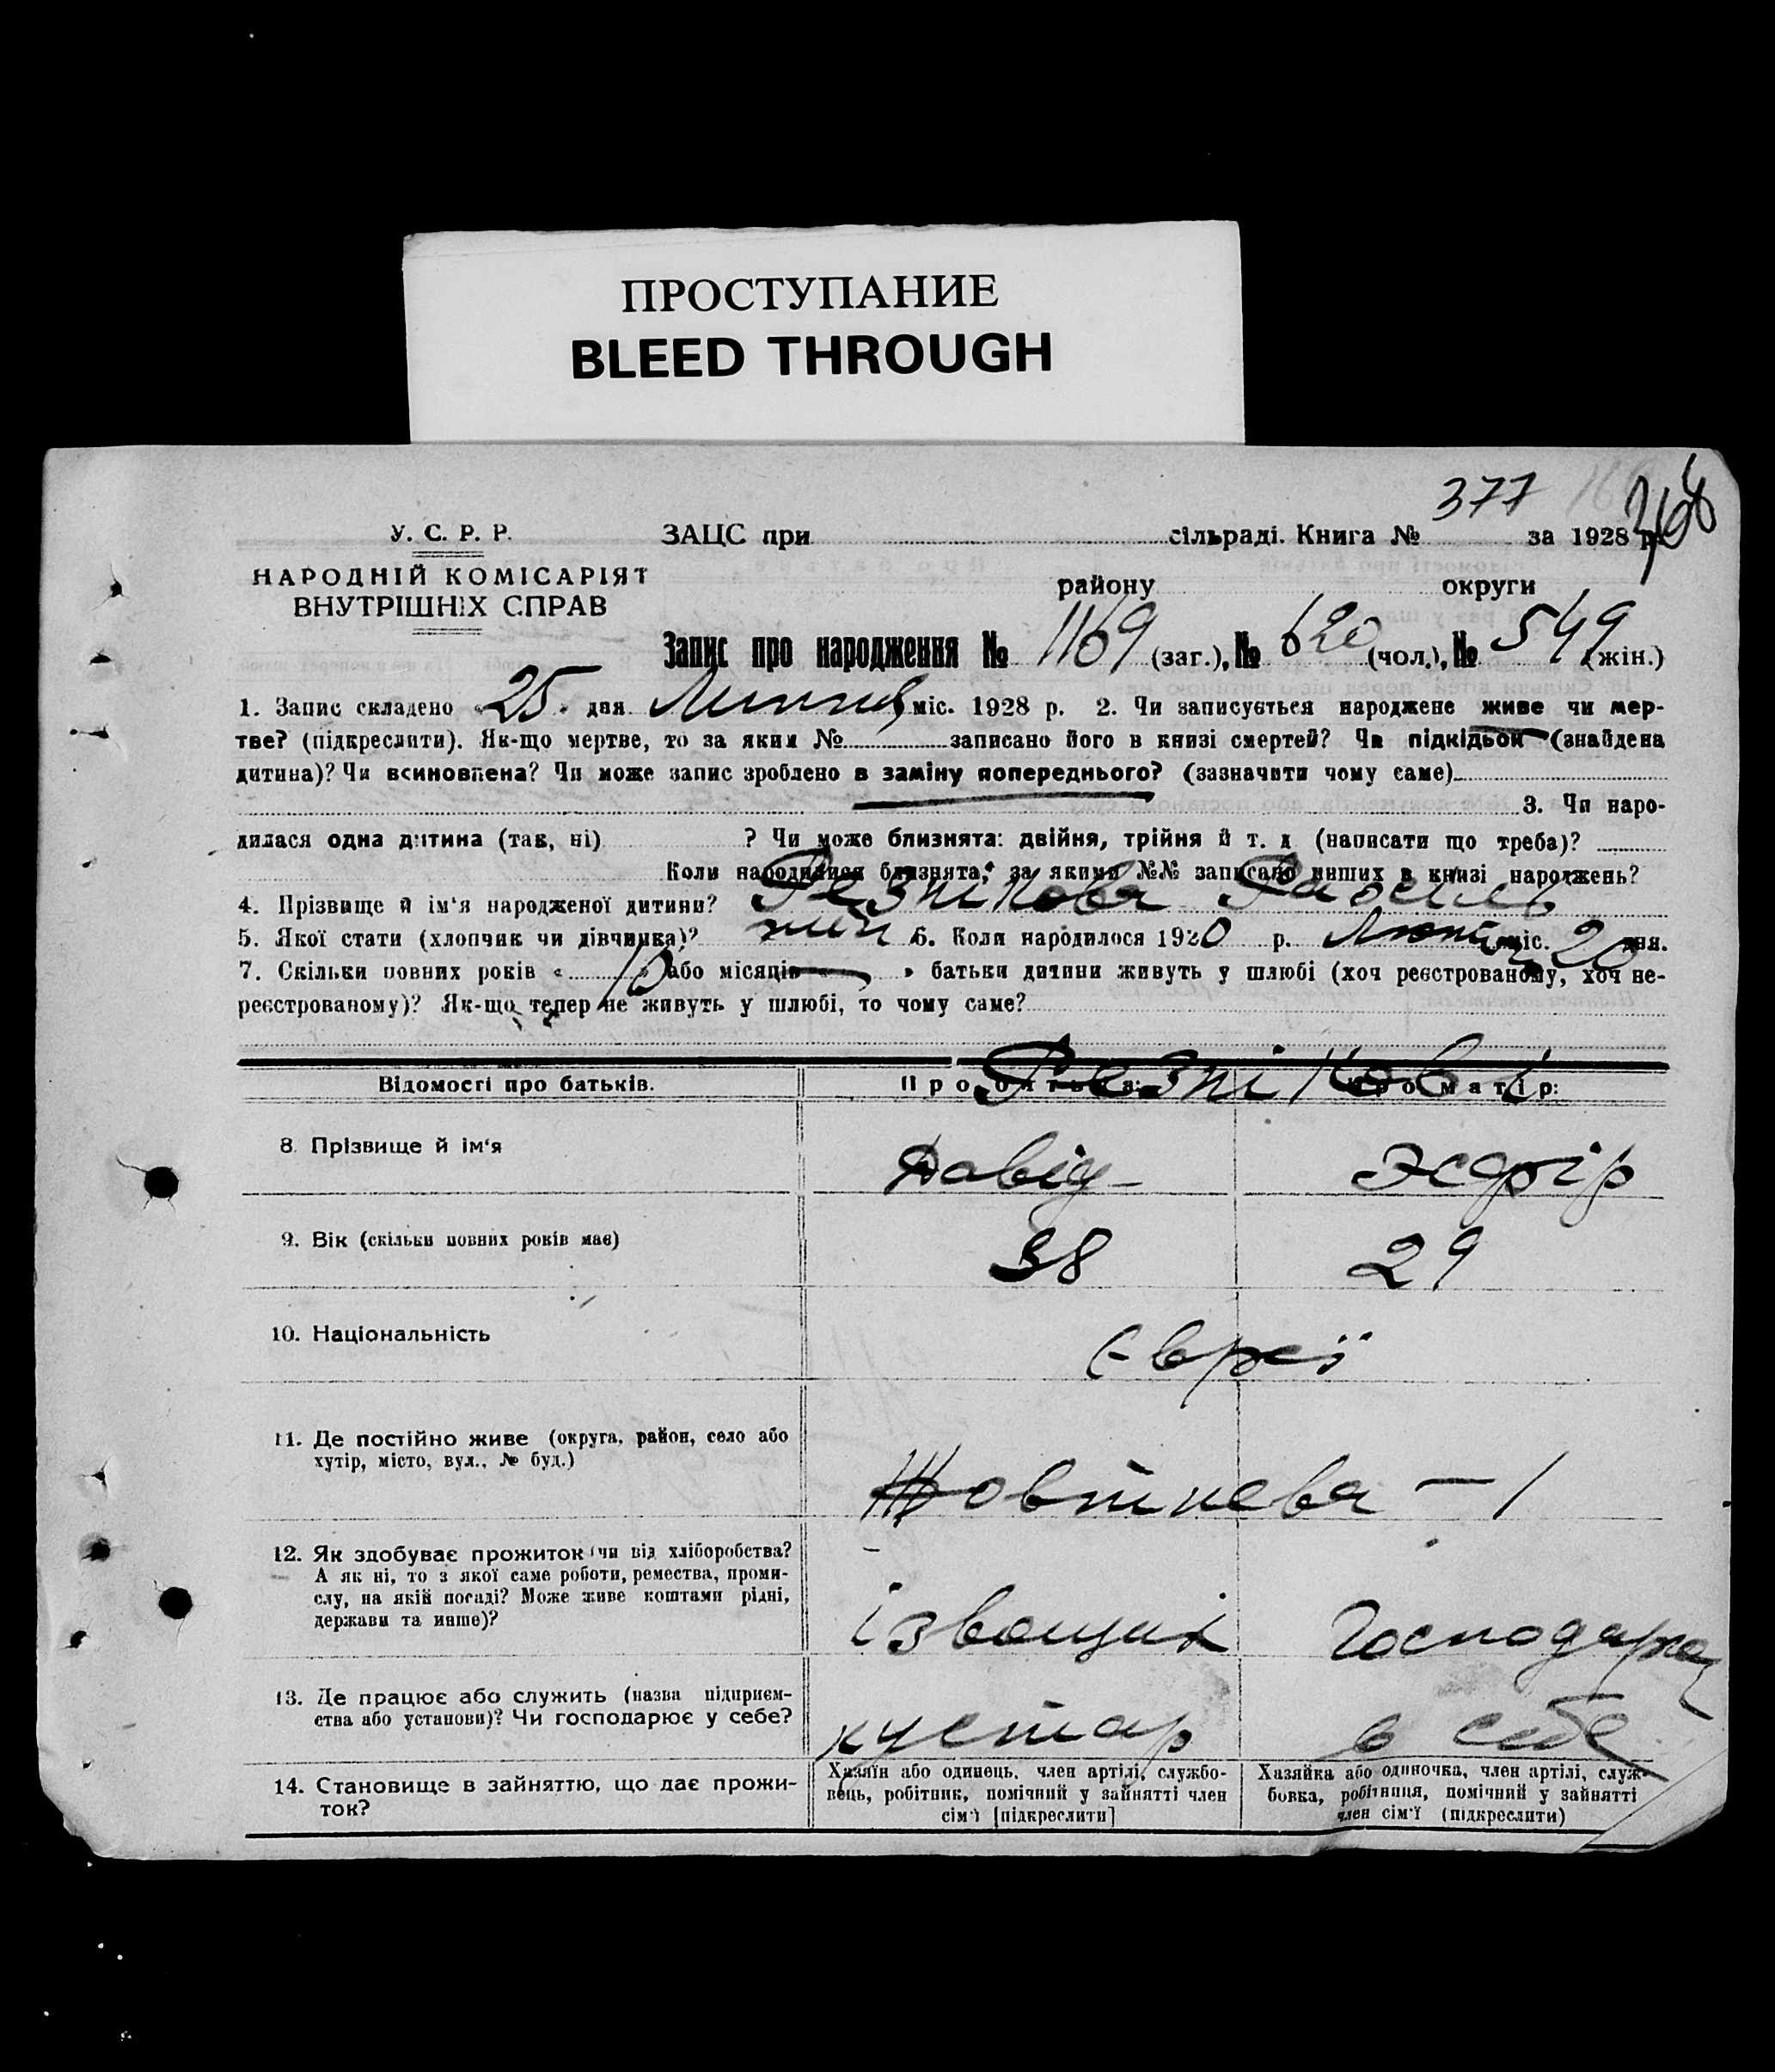 ПРОСТУПАНИЕ
BLEED THROUGH
377
У. С. Р. Р.
ЗАЦС при сільраді. Книга № за 1928 р.
НАРОДНІЙ КОМІСАРІЯТ
ВНУТРІШНІХ СПРАВ
району округи
Запис про народження № 1169 (заг.), № 620 (чол.), № 549 (жін.)
1. Запис складено «25» дня Липня міс. 1928 р. 2. Чи записується народжене живе чи мер-
тве? (підкреслити). Як-що мертве, то за яким № записано його в книзі смертей? Чи підкідьок (знайдена
дитина)? Чи всиновлена? Чи може запис зроблено в заміну попереднього? (зазначити чому саме)
3. Чи наро-
дилася одна дитина (так, ні) ? Чи може близнята: двійня, трійня й т. д (написати що треба)?
Коли народилися близнята, за якими №№ записано инших в книзі народжень?
4. Прізвище й ім'я народженої дитини? Резнікова
5. Якої стати (хлопчик чи дівчинка)? жін 6. Коли народилося 1920 р. Лютий міс. 20 дня.
7. Скільки повних років « » або місяців « — » батьки дитини живуть у шлюбі (хоч реєстрованому, хоч не-
реєстрованому)? Як-що тепер не живуть у шлюбі, то чому саме?
Резнікові
Відомості про батьків. Про батька: Про матір:
8. Прізвище й ім'я Давід Эсфір
9. Вік (скільки повних років має) 38 29
10. Національність Євреї
11. Де постійно живе (округа, район, село або
хутір, місто, вул., № буд.)
Жовтнева — 1
12. Як здобуває прожиток (чи від хліборобства?
А як ні, то з якої саме роботи, ремества, проми-
слу, на якій посаді? Може живе коштами рідні,
держави та инше)?
ізвощик Господарка
13. Де працює або служить (назва підприєм-
ства або установи)? Чи господарює у себе?
кустар в себе
14. Становище в зайняттю, що дає прожи-
ток?
Хазяїн або одинець, член артілі, службо-
вець, робітник, помічний у зайнятті член
сім'ї [підкреслити]
Хазяйка або одиночка, член артілі, служ-
бовка, робітниця, помічний у зайнятті
член сім'ї (підкреслити)